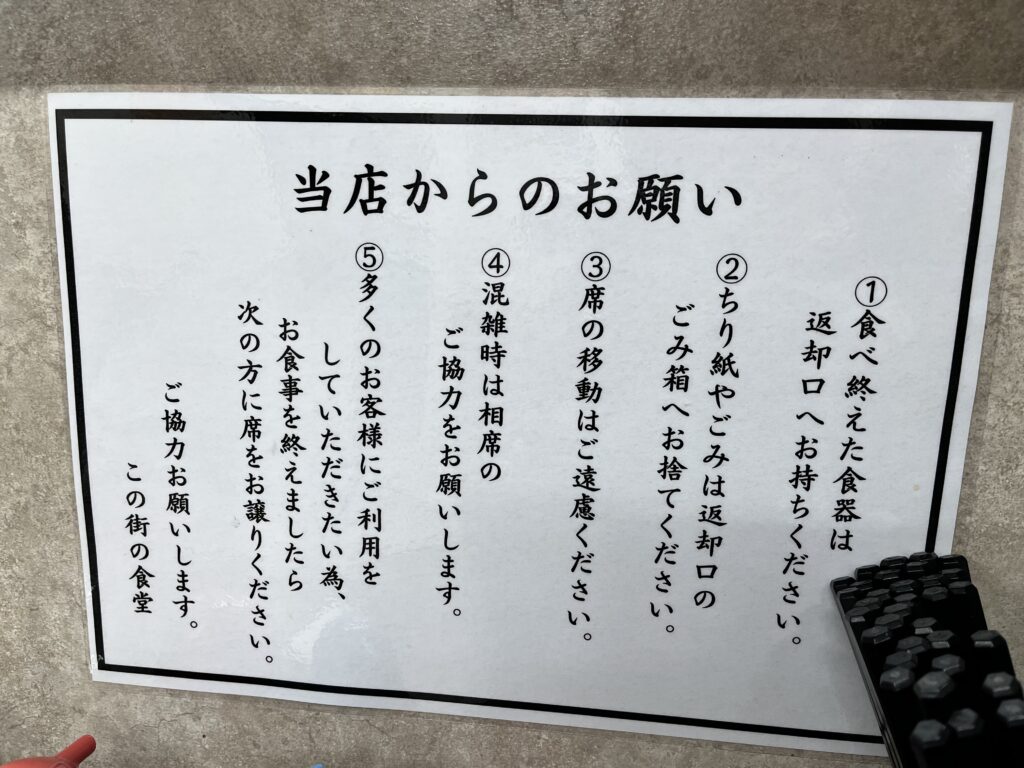 当店からのお願い
①食べ終えた食器は
返却口へお持ちください。
②ちり紙やごみは返却口の
ごみ箱へお捨てください。
③席の移動はご遠慮ください。
④混雑時は相席の
ご協力をお願いします。
⑤多くのお客様にご利用を
していただきたい為、
お食事を終えましたら
次の方に席をお譲りください。
ご協力お願いします。
この街の食堂